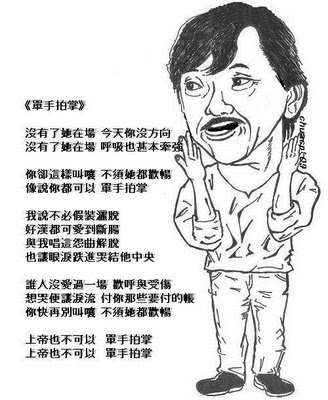 《單手拍掌》
沒有了她在場 今天你沒方向
沒有了她在場 呼吸也甚本牽強
你卻這樣叫嚷 不須她都歡暢
像說你都可以 單手拍掌
我說不必假裝灑脫
好漢都可愛到斷腸
與我唱這怨曲解脫
也讓眼淚跌進哭結他中央
誰人沒愛過一場 歡呼與受傷
想哭便讓淚流 付你那些要付的帳
你快再別叫嚷 不須她都歡暢
上帝也不可以 單手拍掌
上帝也不可以 單手拍掌
chuacat-09